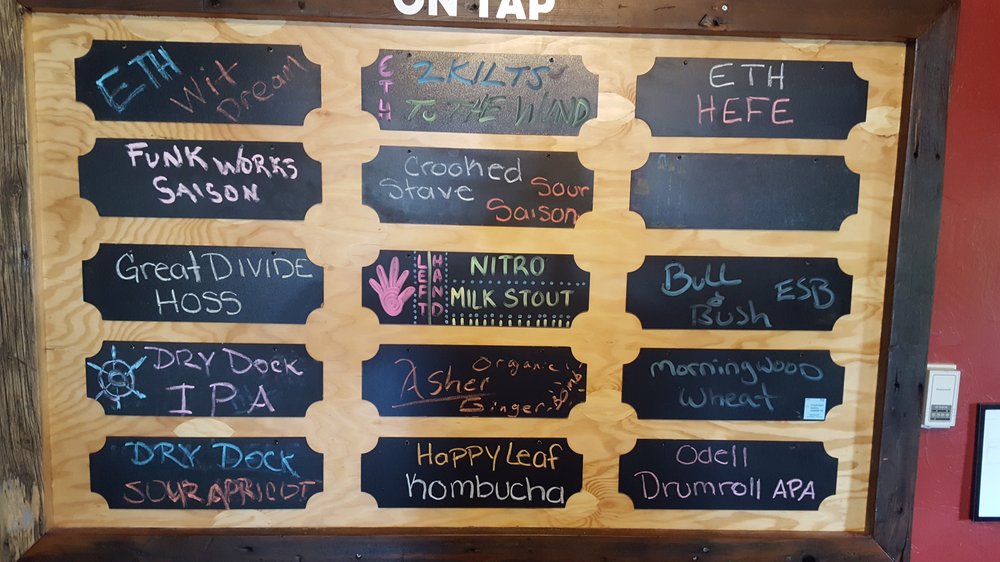 ON TAP
ETH Wit
Dream
ETH 2 KILTS
TO THE WIND
ETH
HEFE
FUNKWORKS
SAISON
Crooked
Stave Sour
Saison
Great DIVIDE
HOSS
LEFT HAND
NITRO
MILK STOUT
Bull
& Bush ESB
DRY DOCK
IPA
Organic
Asher
Ginger
Morningwood
Wheat
DRY DOCK
SOUR APRICOT
HAPPY Leaf
Kombucha
Odell
Drumroll APA